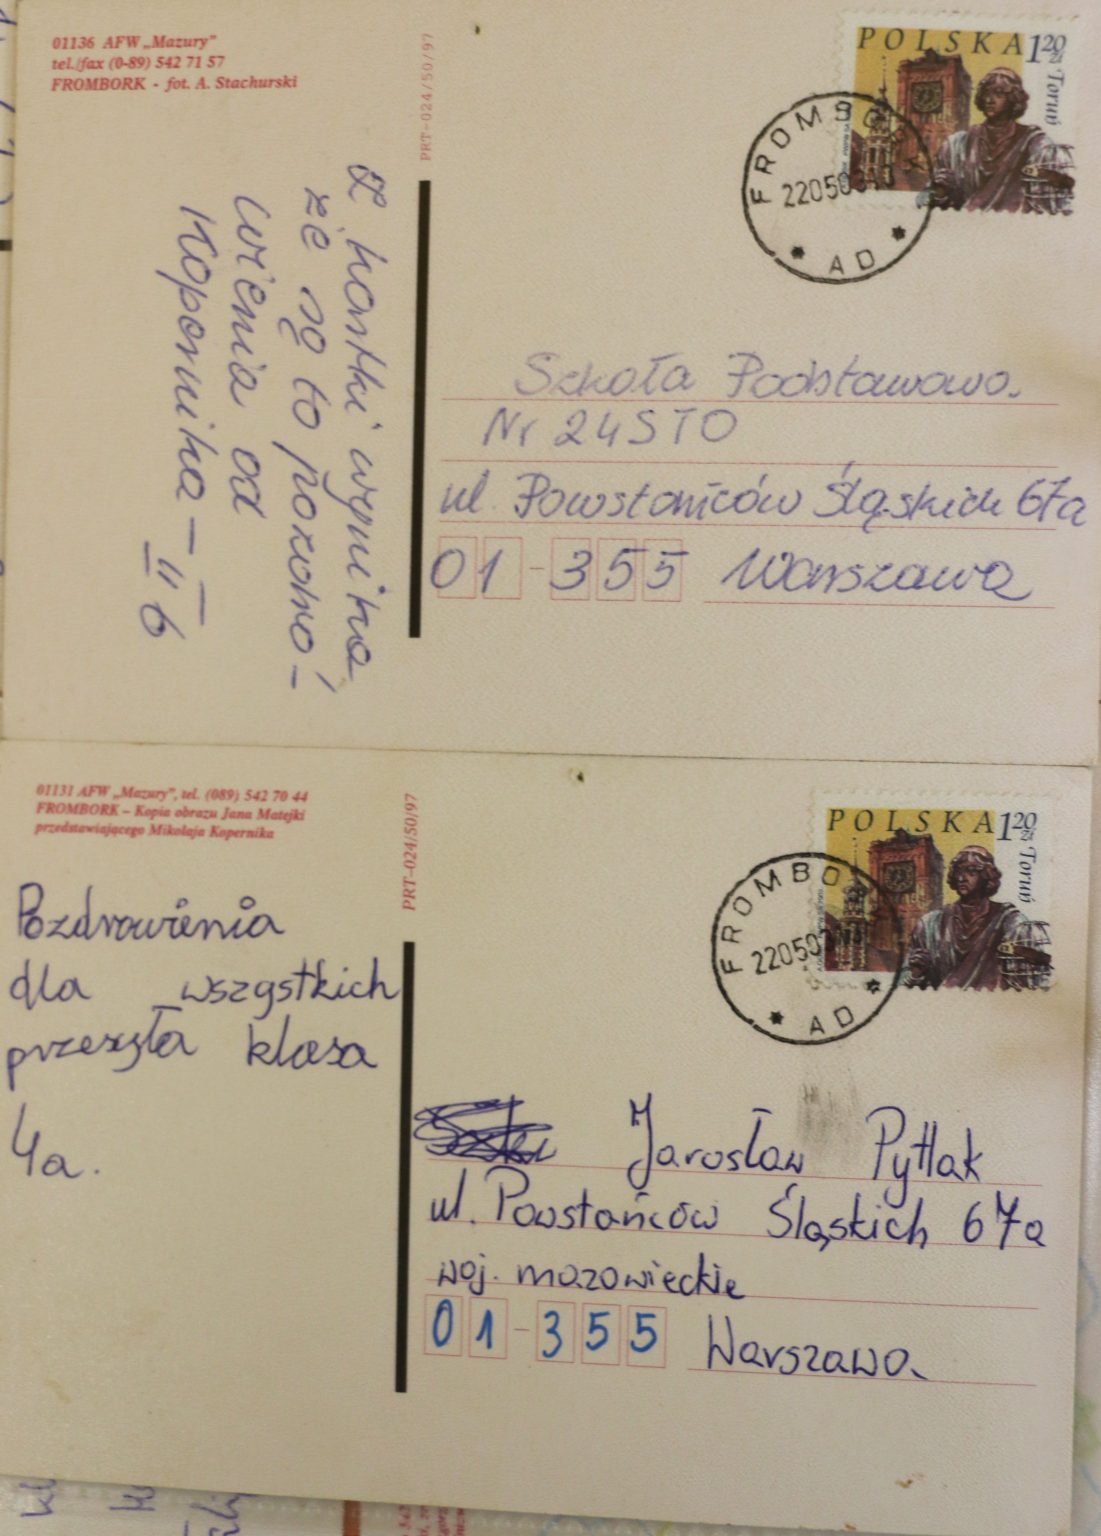 01136 AFW „Mazury”
tel./fax (0-89) 542 71 57
FROMBORK - fot. A. Stachurski
PRT-024/50/97
POLSKA 1 20 zł
Toruń
FROMBORK
220503
* AD *
Z kartki wynika
że są to pozdro-
wienia od
Kopernika –
II b
Szkoła Podstawowa
Nr 24 STO
ul. Powstańców Śląskich 67a
01-355 Warszawa
01131 AFW „Mazury”, tel. (089) 542 70 44
FROMBORK – Kopia obrazu Jana Matejki
przedstawiającego Mikołaja Kopernika
PRT-024/50/97
POLSKA 1 20 zł
Toruń
FROMBO
220503
* AD *
Pozdrowienia
dla wszystkich
przeszła klasa
4a.
Jarosław Pytlak
ul. Powstańców Śląskich 67a
woj. mazowieckie
01-355 Warszawa